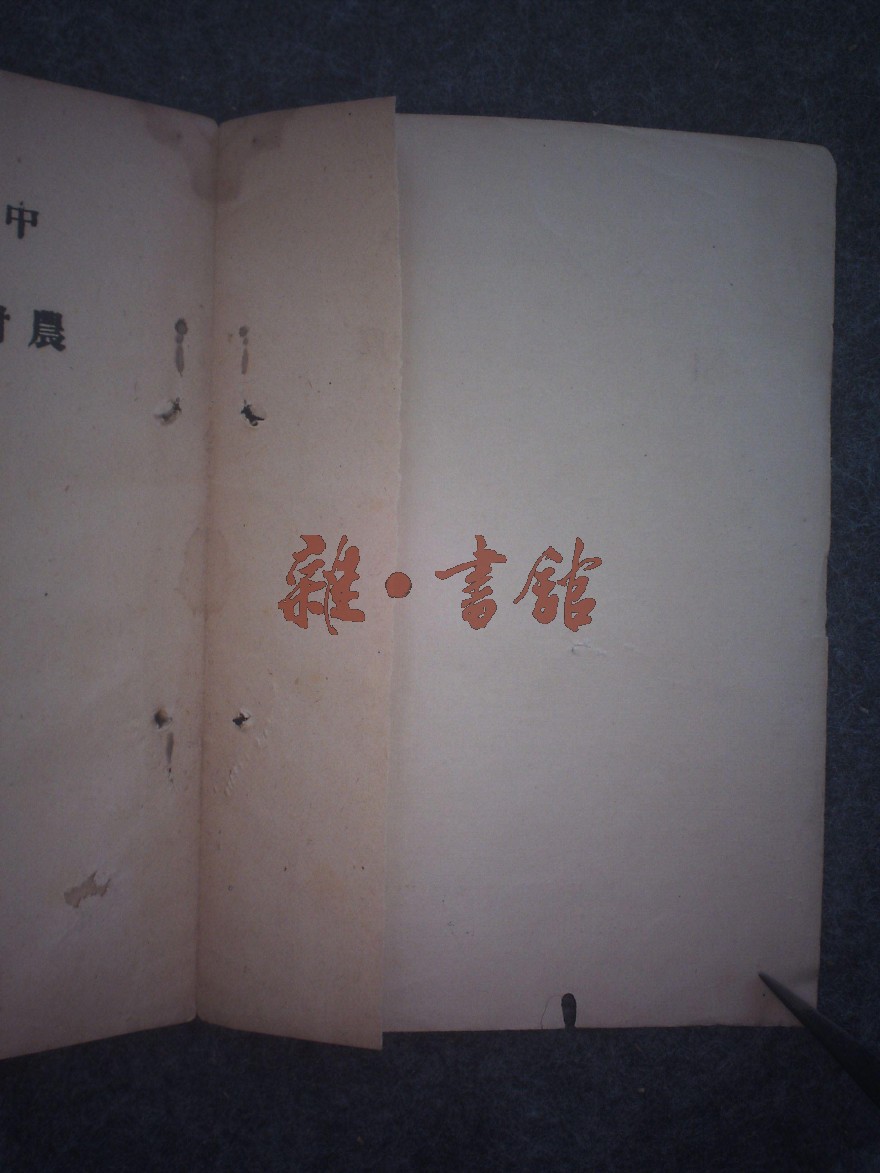 中
農
雜·書館